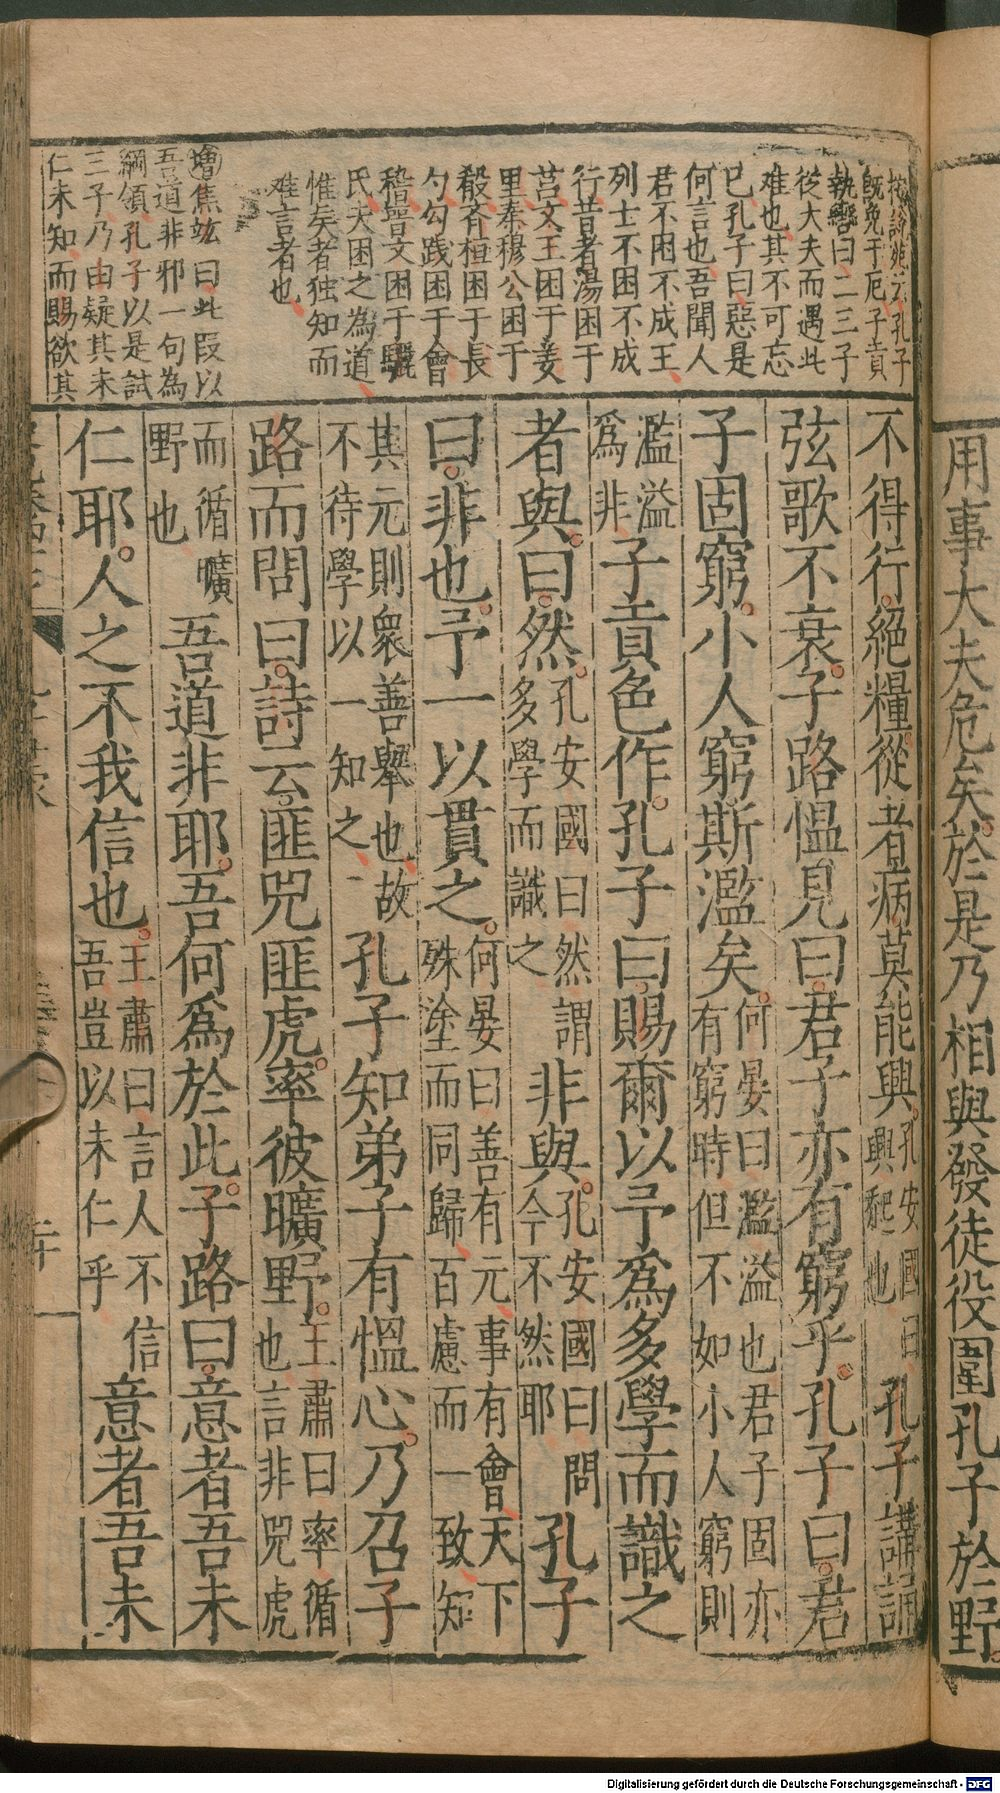 用事大夫危矣於是乃相與發徒役圍孔子於野
按說苑云孔子
既免于厄子貢
執轡曰二三子
從大夫而遇此
难也其不可忘
已孔子曰惡是
何言也吾聞人
君不困不成王
列士不困不成
行昔者湯困于
莒文王困于羑
里秦穆公困于
殽齐桓困于長
勺勾践困于會
稽晋文困于驪
氏夫困之為道
惟矣者独知而
难言者也
增焦竑曰此叚以
吾道非邪一句為
綱領孔子以是試
三子乃由疑其未
仁未知而賜欲其
不得行絕糧從者病莫能興孔安國曰興起也孔子講誦
弦歌不衰子路慍見曰君子亦有窮乎孔子曰君
子固窮小人窮斯濫矣何晏曰濫溢也君子固亦有窮時但不如小人窮則
濫溢爲非子貢色作孔子曰賜爾以予爲多學而識之
者與曰然孔安國曰然謂多學而識之非與孔安國曰問今不然耶孔子
曰非也予一以貫之何晏曰善有元事有會天下殊塗而同歸百慮而一致知
其元則衆善舉也故不待學以一知之孔子知弟子有慍心乃召子
路而問曰詩云匪兕匪虎率彼曠野王肅曰率循也言非兕虎
而循曠野也吾道非耶吾何爲於此子路曰意者吾未
仁耶人之不我信也王肅曰言人不信吾豈以未仁乎意者吾未
Digitalisierung gefördert durch die Deutsche Forschungsgemeinschaft - DFG